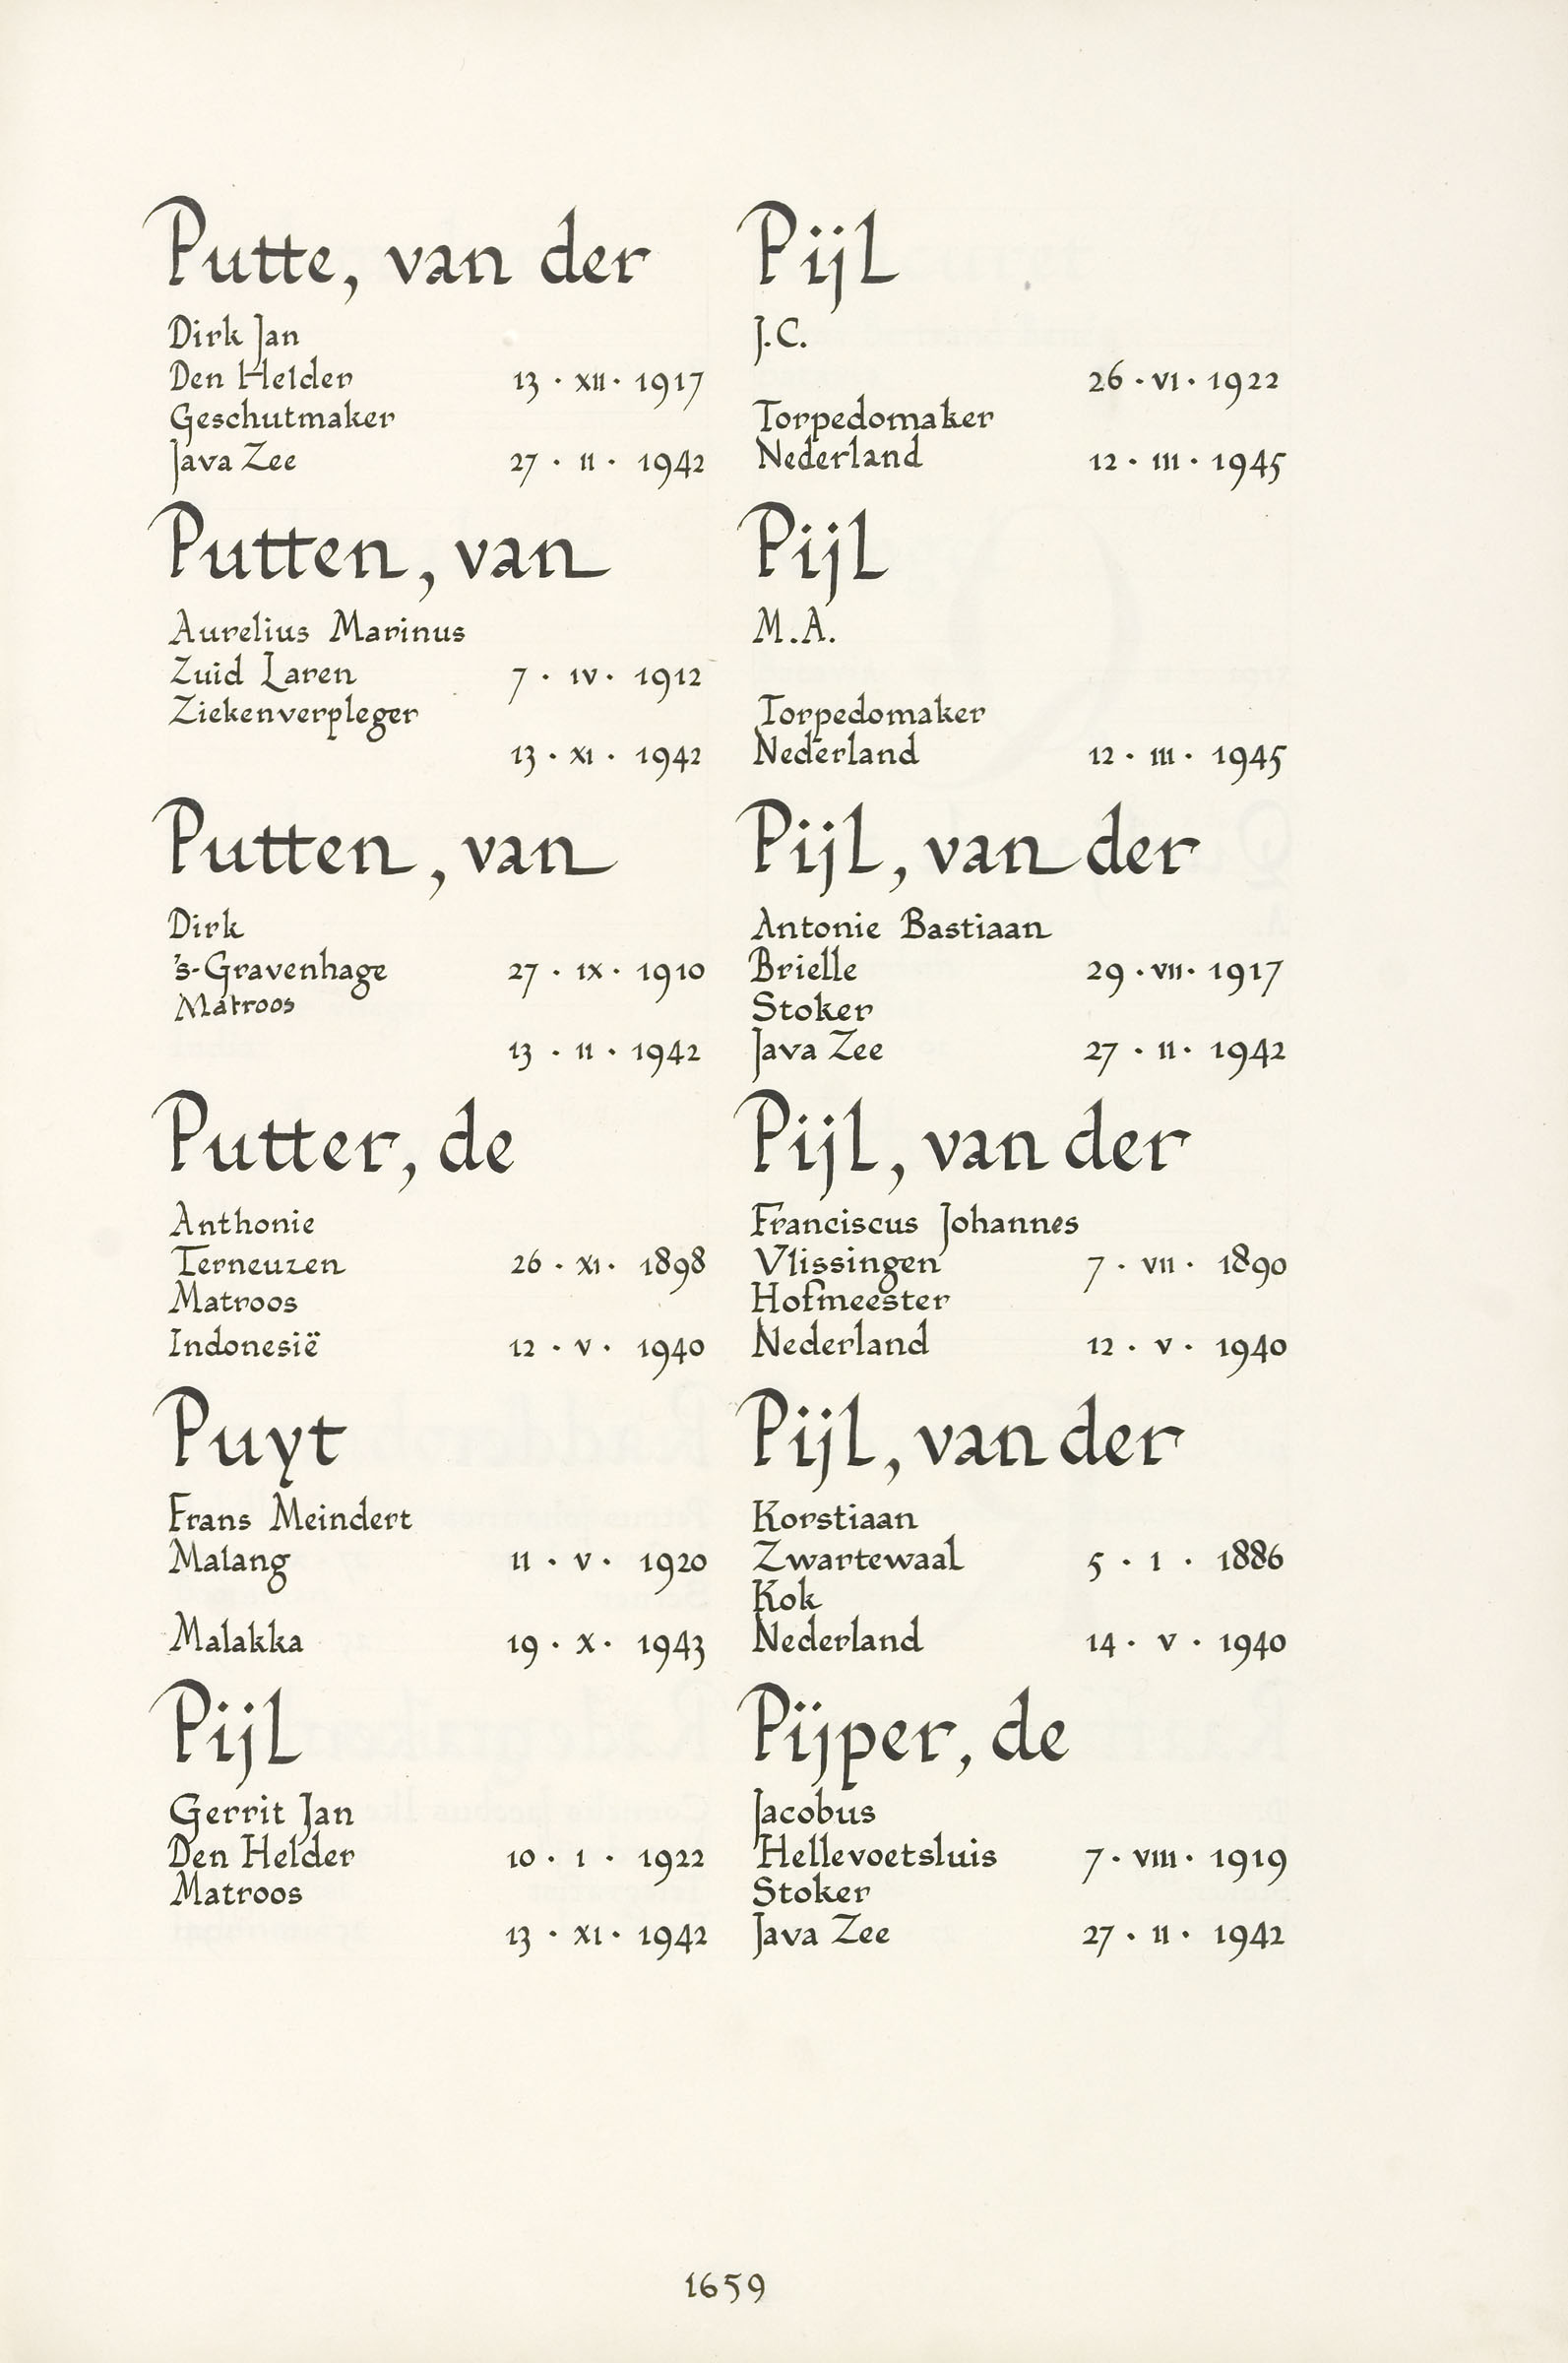 Putte, van der
Dirk Jan
Den Helder 13 · XII · 1917
Geschutmaker
Java Zee 27 · II · 1942
Putten, van
Aurelius Marinus
Zuid Laren 7 · IV · 1912
Ziekenverpleger
13 · XI · 1942
Putten, van
Dirk
's-Gravenhage 27 · IX · 1910
Matroos
13 · II · 1942
Putter, de
Anthonie
Terneuzen 26 · XI · 1898
Matroos
Indonesië 12 · V · 1940
Puyt
Frans Meindert
Malang 11 · V · 1920
Malakka 19 · X · 1943
Pijl
Gerrit Jan
Den Helder 10 · 1 · 1922
Matroos
13 · XI · 1942
Pijl
J.C.
26 · VI · 1922
Torpedomaker
Nederland 12 · III · 1945
Pijl
M.A.
Torpedomaker
Nederland 12 · III · 1945
Pijl, van der
Antonie Bastiaan
Brielle 29 · VII · 1917
Stoker
Java Zee 27 · II · 1942
Pijl, van der
Franciscus Johannes
Vlissingen 7 · VII · 1890
Hofmeester
Nederland 12 · V · 1940
Pijl, van der
Korstiaan
Zwartewaal 5 · 1 · 1886
Kok
Nederland 14 · V · 1940
Pijper, de
Jacobus
Hellevoetsluis 7 · VIII · 1919
Stoker
Java Zee 27 · II · 1942
1659